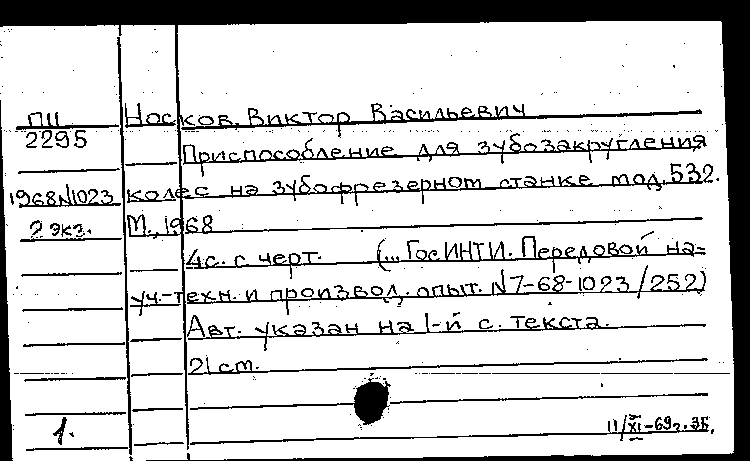 ПII Носков, Виктор Васильевич
2295 Приспособление для зубозакругления
1968N1023 колес на зубофрезерном станке мод. 532.
2 экз. М., 1968
4с. с черт. (... ГосИНТИ. Передовой на=
уч.-техн. и производ. опыт. N7-68-1023/252)
Авт. указан на 1-й с. текста.
21 см.
1. 11/XI-69г. ЗБ.